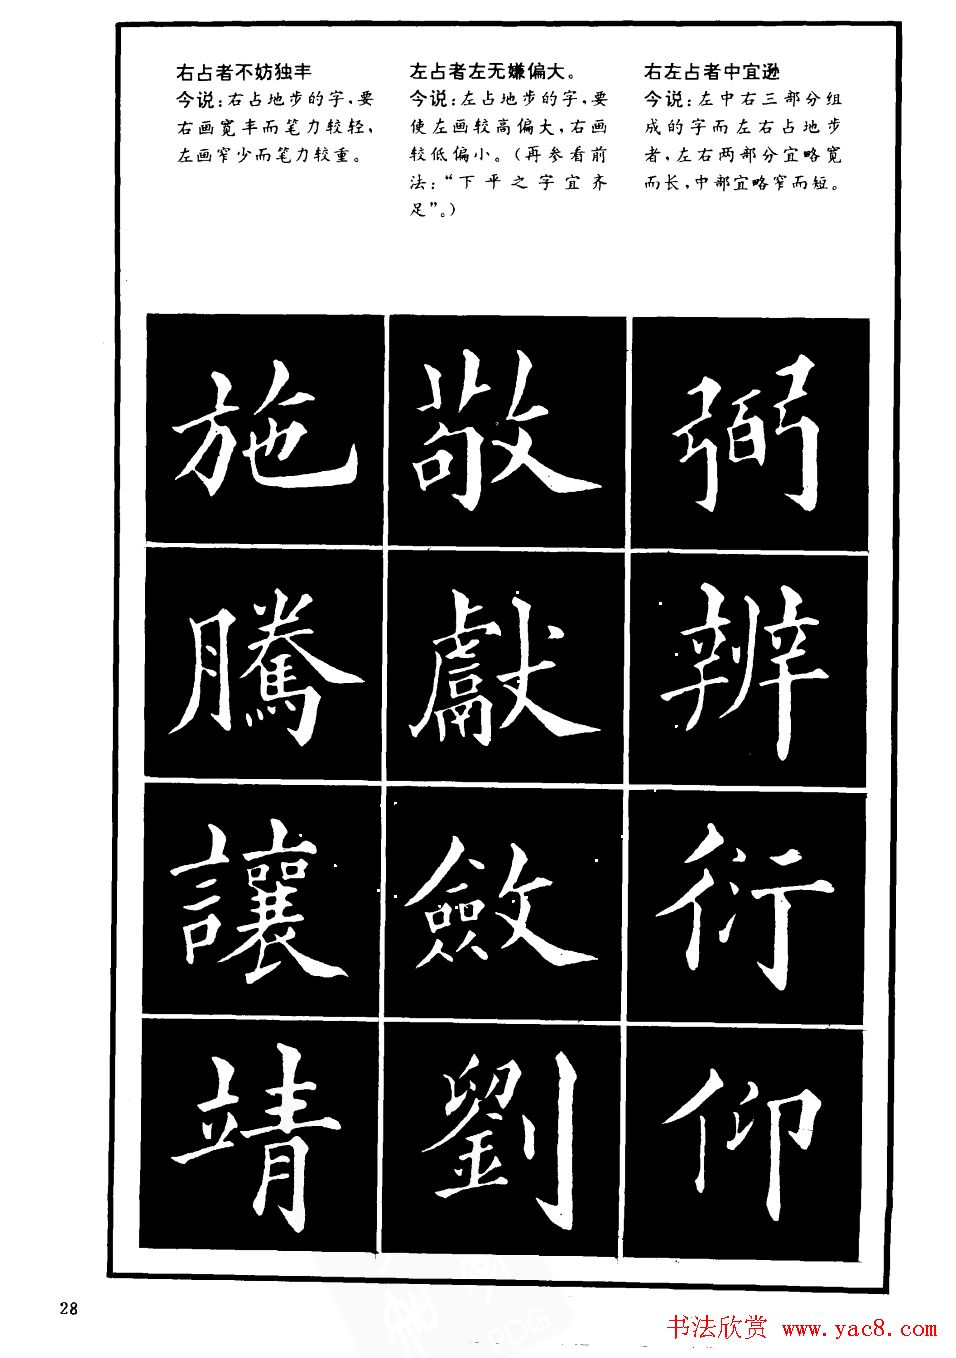 右占者不妨独丰
今说:右占地步的字,要
右画宽丰而笔力较轻,
左画窄少而笔力较重。
左占者左无嫌偏大。
今说:左占地步的字,要
使左画较高偏大,右画
较低偏小。(再参看前
法:“下平之字宜齐
足”。)
右左占者中宜逊
今说:左中右三部分组
成的字而左右占地步
者,左右两部分宜略宽
而长,中部宜略窄而短。
施 敬 弼
騰 獻 辨
讓 斂 衍
靖 劉 仰
28
书法欣赏 www.yac8.com